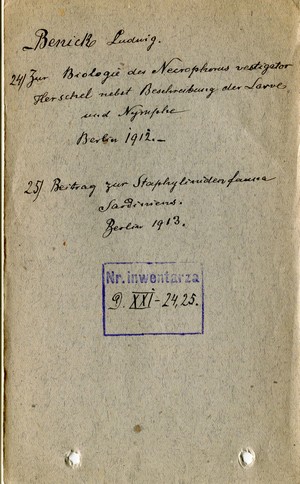 Benick Ludwig.
24) Zur Biologie des Necrophorus vestigator
Herschel nebst Beschreibung der Larve
und Nymphe
Berlin 1912.—
25) Beitrag zur Staphylinidenfauna
Sardiniens.
Berlin 1913.
Nr. inwentarza
XXI - 24, 25.